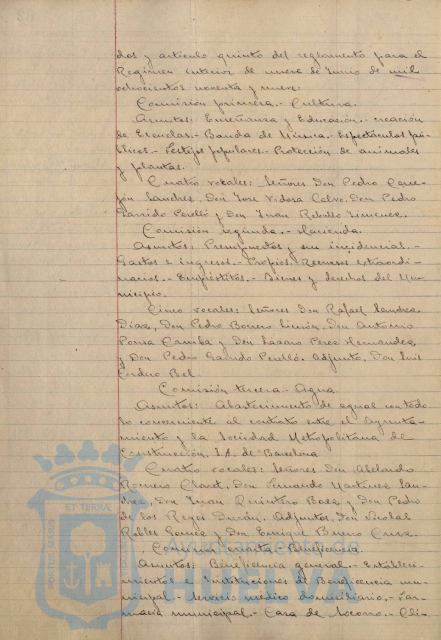 dos y artículo quinto del reglamento para el
Régimen interior de nueve de Junio de mil
ochocientos noventa y nueve.
Comisión primera.- Cultura.
Asuntos: Enseñanza y Educación.- creación
de Escuelas.- Banda de Música.- Espectáculos pú-
blicos.- Festejos populares.- Protección de animales
y plantas.
Cuatro vocales: Señores Don Pedro
Don José Vidosa Calvo, Don Pedro
Garrido Perelló y Don Juan Rebollo Jimenez.
Comisión segunda.- Hacienda.
Asuntos: Presupuestos y sus incidencias.-
Gastos e ingresos.- Propios.- Recursos extraordi-
narios.- Empréstitos.- Bienes y derechos del Mu-
nicipio.
Cinco vocales: Señores Don Rafael
Díaz, Don Pedro Borrero Limón, Don Antonio
y Don Lázaro Perez Hernandez
y Don Pedro Garrido Perelló. Adjunto, Don Luis
Cordero Bel.
Comisión tercera.- Agua.
Asuntos: Abastecimiento de aguas con todo
lo concerniente al contrato entre el Ayunta-
miento y la Sociedad Metropolitana de
Construcción, S.A. de Barcelona
Cuatro vocales: Señores Don Abelardo
Romero Claret, Don Fernando Martinez
Don Juan Quintero Baez y Don Pedro
de los Reyes Durán. Adjuntos, Don Nicolás
Robles Gomez y Don Enrique Bueno Cruz.
Comisión cuarta.- Beneficencia.
Asuntos: Beneficencia general.- Estableci-
mientos e Instituciones de Beneficencia mu-
nicipal.- Servicio médico domiciliario.- Far-
macia municipal.- Casa de Socorro.- Clí-
ET TERRA